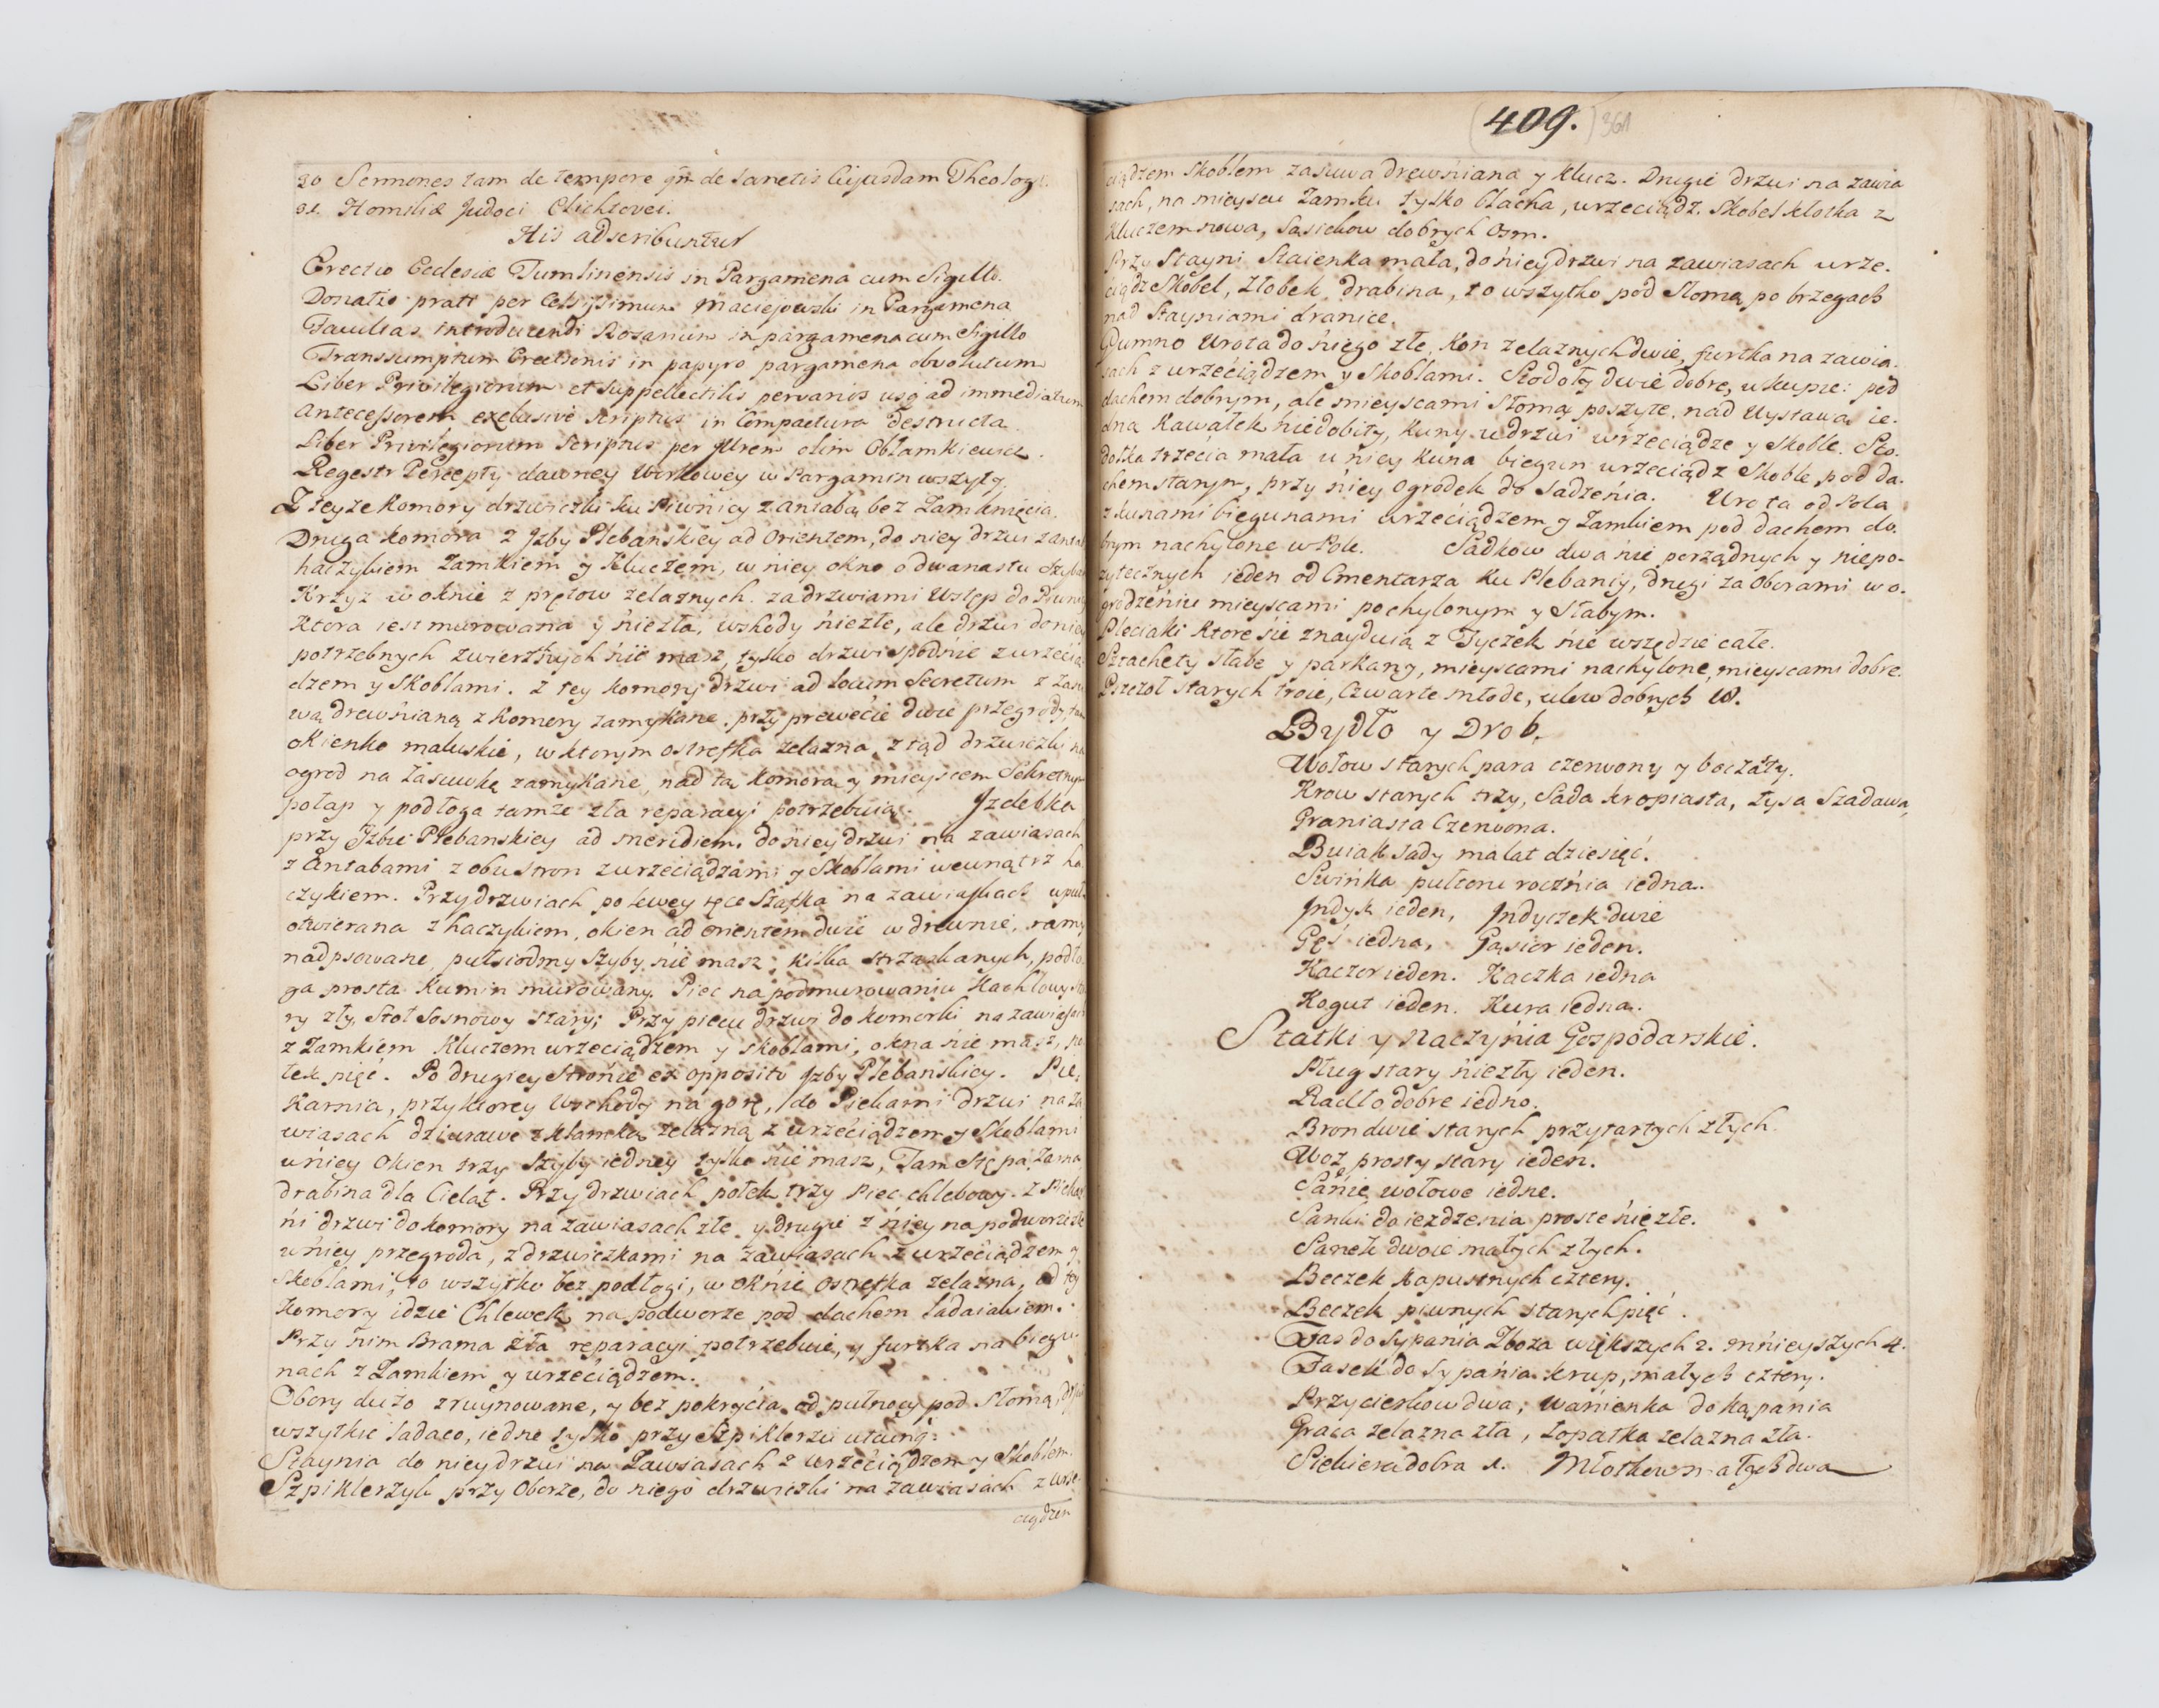 20 Sermones tam de tempore qm de Sanctis Cujusdam Theologi
21. Homiliæ Judoci Clichtovei.
His adscribuntur
Erectio Ecclesiæ Tumlinensis in Pargamena cum Sigillo.
Donatio prati per Celsissimum Maciejowski in Pargamena
Facultas introducendi Rosarium in pargamena cum Sigillo
Transsumptum Erectionis in papyro pargamena obvolutum
Liber Privilegiorum et Suppellectilis per varios usq ad immediatum
Antecessorem exclusive Scriptus in Compactura destructa
Liber Privilegiorum Scriptus per olim Obłamkiewicz.
Regestr Percepty dawney Workowey w Pargamin wszyty.
Z teyze Komory drzwiczki ku Piwnicy z antabą bez Zamknięcia.
Druga Komora z Jzby Plebańskiey ad Orientem, do niey drzwi z
haczykiem Zamkiem y Kluczem, w niey okno o dwanastu
Krzyz w oknie z prętow zelaznych. za drzwiami Wstęp do
Ktora iest murowana y niezła, wskody niezłe, ale drzwi do
potrzebnych zwierzhnych nie masz, tylko drzwi spodnie z urzecią
dzem y Skoblami. z tey komory drzwi ad locum Secretum z
wą drewnianą z Komory zamykane. przy prewecie dwie przegrody,
okienko maluskie, w ktorym ostrefka zelazna, z tąd drzwiczki
ogrod na Zasuwkę zamykane, nad tą komorą y mieyscem Sekretnym
połap y podłoga tamze zła reparacyi potrzebuią. Jzdebka
przy Jzbie Plebanskiey ad meridiem. do niey drzwi na zawiasach
z Antabami z obu stron z urzeciądzami y Skoblami wewnątrz ha
czykiem. Przy drzwiach po lewey ręce Szafka na zawiaskach
otwierana z haczykiem, okien ad orientem dwie w drewnie, ramy
nadpsowane, pułsiodmy Szyby nie masz, kilka strzaskanych, podło
ga prosta Kumin murowany. Piec na podmurowaniu Kachlowy
ry zły, Stoł Sosnowy stary; Przy piecu drzwi do komorki na
z Zamkiem Kluczem urzeciądzem y skoblami, okna nie masz,
łek pięć. Po drugiey Stronie ex opposito Jzby Plebanskiey. Pie:
karnia, przy ktorey Wschody na gorę, do Piekarni drzwi na za
wiasach dziurawe z klamką zelazną z urzeciądzem y Skoblami
u niey Okien trzy Szyby iedney tylko nie masz, Tam Stępa,
drabina dla Cieląt. Przy drzwiach połek trzy Piec chlebowy. z
ni drzwi do komory na zawiasach złe y drugie z niey na podworze
u niey przegroda, z drzwiczkami na zawiasach z urzeciądzem y
Skoblami, to wszytko bez podłogi, w oknie Ostrefka zelazna, od tey
Komory idzie Chlewek na podworze pod dachem ladaiakiem.
Przy nim Brama zła reparacyi potrzebuie, y furtka na biegu
nach z Zamkiem y urzeciądzem.
Obory duzo zruynowane, y bez pokrycia od pułnocy pod Słomą,
wszytkie ladaco, iedne tylko przy Szpiklerzu
Staynia do niey drzwi na Zawiasach z urzeciądzem y Skoblem.
Szpiklerzyk przy Oborze, do niego drzwiczki na zawiasach z urze
ciądzem
409. 361
ciądzem Skoblem zasuwa drewniana y klucz. Drugie drzwi na zawia
sach, na mieyscu Zamku tylko blacha, urzeciądz. Skobel kłotka z
Kluczem nowa, Sąsiekow dobrych Osm.
Przy Stayni Staienka mała, do niey drzwi na zawiasach urze.
ciądz Skobel, Złobek drabina, to wszytko pod Słomą po brzegach
nad Stayniami dranice.
Gumno Wrota do niego złe, Kon zelaznych dwie, furtka na zawia.
sach z urzeciądzem y Skoblami. Stodoły dwie dobre, w kupie: pod
dachem dobrym, ale mieyscami Słomą poszyte. nad Wystawą ie.
dna Kawałek niedobity, kuny u drzwi wrzeciądze y Skoble. Sto.
dołka trzecia mała u niey Kuna biegun urzeciądz Skoble pod da.
chem starym, przy niey Ogrodek do Sadzenia. Wrota od Pola
z kunami biegunami urzeciądzem y Zamkiem pod dachem do.
brym nachylone w Pole. Sadkow dwa nie porządnych y niepo-
zytecznych ieden od Cmentarza ku Plebaniy, drugi za Oborami w o.
grodzeniu mieyscami pochylonym y Słabym.
Pleciaki Ktore sie znayduią z Tyczek nie wszędzie całe.
Sztachety słabe y parkany, mieyscami nachylone mieyscami dobre.
Pszczoł starych troie, Czwarte młode, ulow dobrych
Bydło y Drob.
Wołow starych para czerwony y boczaty.
Krow starych trzy, Sada kropiasta, łysa Szadawa,
Graniasta Czerwona.
Buiak sady malat dziesięć.
Swińka pułtoru rocznia iedna.
Jndyk ieden, Jndyczek dwie
Gęś iedna, Gąsior ieden.
Kaczor ieden. Kaczka iedna
Kogut ieden. Kura iedna.
Statki y Naczynia Gospodarskie.
Pług stary niezły ieden.
Radło dobre iedno.
Bron dwie starych przytartych złych.
Woz prosty stary ieden.
Sanie wołowe iedne.
Sanki do iezdzenia proste niezłe.
Sanek dwoie małych złych.
Beczek kapustnych cztery.
Beczek piwnych starych pięć.
Fas do Sypania Zboza większych 2. mnieyszych 4.
Fasek do Sypania krup, małych cztery.
Przycierkow dwa, Wanienka do kąpania
Graca zelazna zła, Łopatka zelazna zła.
Siekiera dobra 1. Młotkow małych dwa